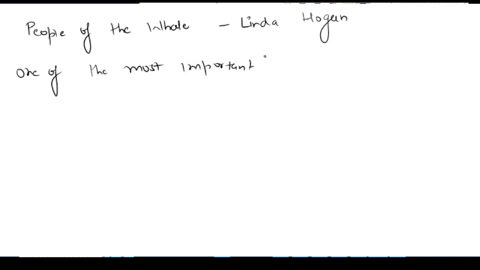 People of the Whale - Linda Hogan
One of the most important